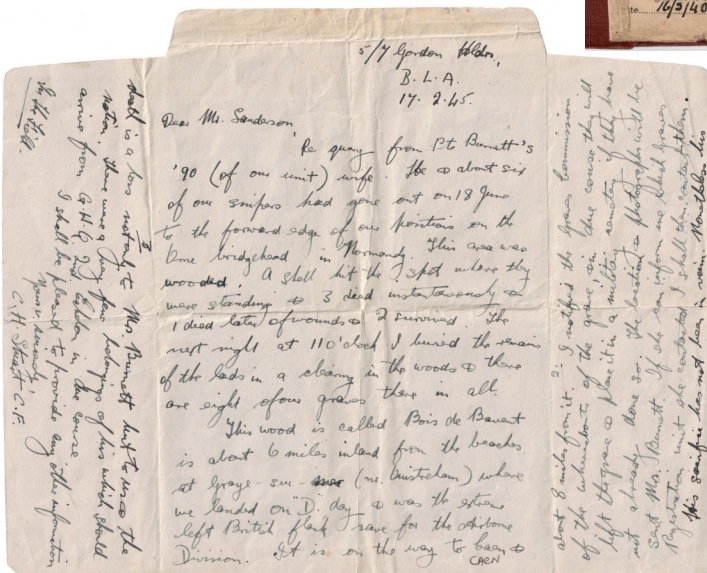 to 16/5/40
5/7 Gordon Hldrs,
B.L.A.
17.2.45.
Dear Mr. Sanderson
Re query from Pte Burnett's
'90 (of our unit) wife. He & about six
of our snipers had gone out on 18 June
to the forward edge of our positions on the
Orne bridgehead in Normandy. This area was
wooded. A shell hit the spot where they
were standing & 3 died instantaneously &
1 died later of wounds & 2 survived. The
next night at 11 O'clock I buried the remains
of the lads in a clearing in the woods & there
are eight of our graves there in all.
This wood is called Bois de Bavent
is about 6 miles inland from the beaches
at Graye-sur-mer (nr. Ouistreham) where
we landed on "D. day & was the extreme
left British flank save for the airborne
Division. It is on the way to Caen &
CAEN
about 8 miles from it. I notified the Graves Commission
of the whereabouts of the grave; in due course they will
lift the grave & place it in a military cemetery if they have
not already done so. The location & photographs will be
sent Mrs. Burnett. If she can inform me which Graves
Registration unit she contacted I shall then contact them.
His sacrifice has not been in vain. Nonetheless his
death is a loss not only to Mrs Burnett but to us & the
nation. There were a very few belongings of his which should
arrive from G.H.Q 2nd Echelon in due course.
I shall be pleased to provide any other information
Yours sincerely,
C.H. Stuart C.F.